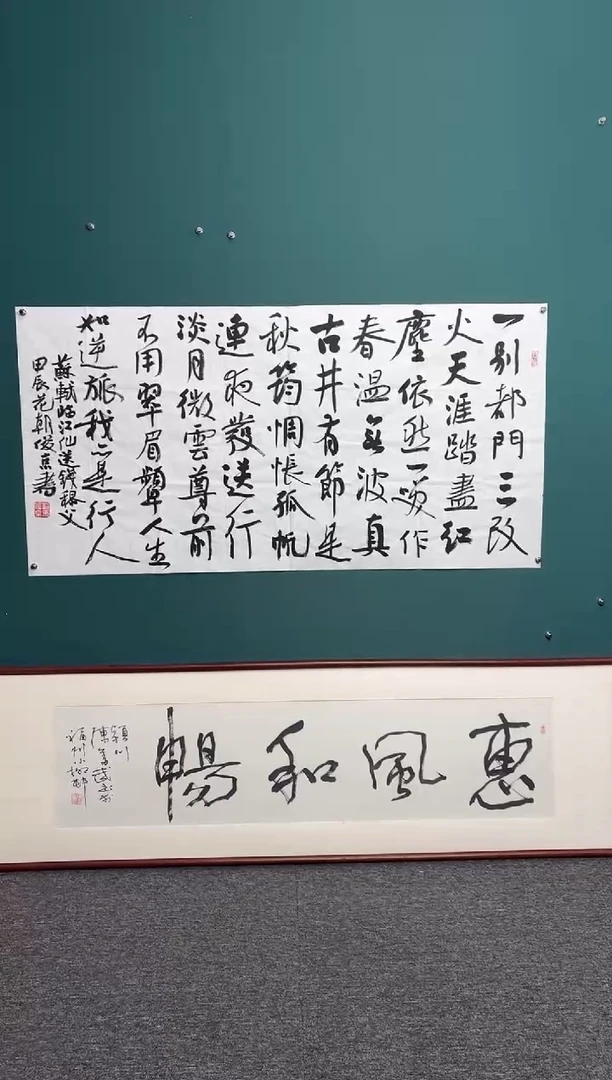 一别都門三改
火天涯踏盡紅
塵依然一咲作
春温無波真
古井有節是
秋筠惆悵孤帆
連夜發送行
淡月微雲尊前
不用翠眉顰人生
如逆旅我亦是行人
蘇軾臨江仙送錢穆父
甲辰花朝俊京書
惠風和暢
穎川
陳
福州